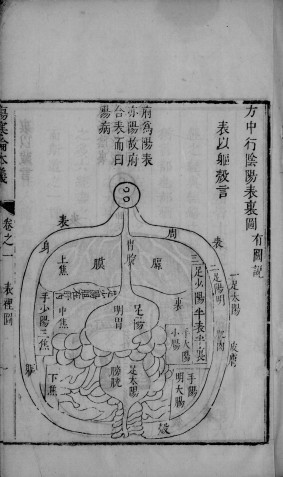 方中行陰陽表裏圖 有圖説
表以軀殼言
府為陽表
亦陽故府
合表而曰
陽病
傷寒論本義
卷之一
表裡圖
表
身
周
表
一 足太陽
二 足陽明
三 足少陽半表半裏
皮膚
肌肉
胃脘
膈
膜
上焦
中焦
手少陽三焦
下焦
足陽
明胃
裏
手太陽
小腸
手陽
明大腸
足太陽
膀胱
殼